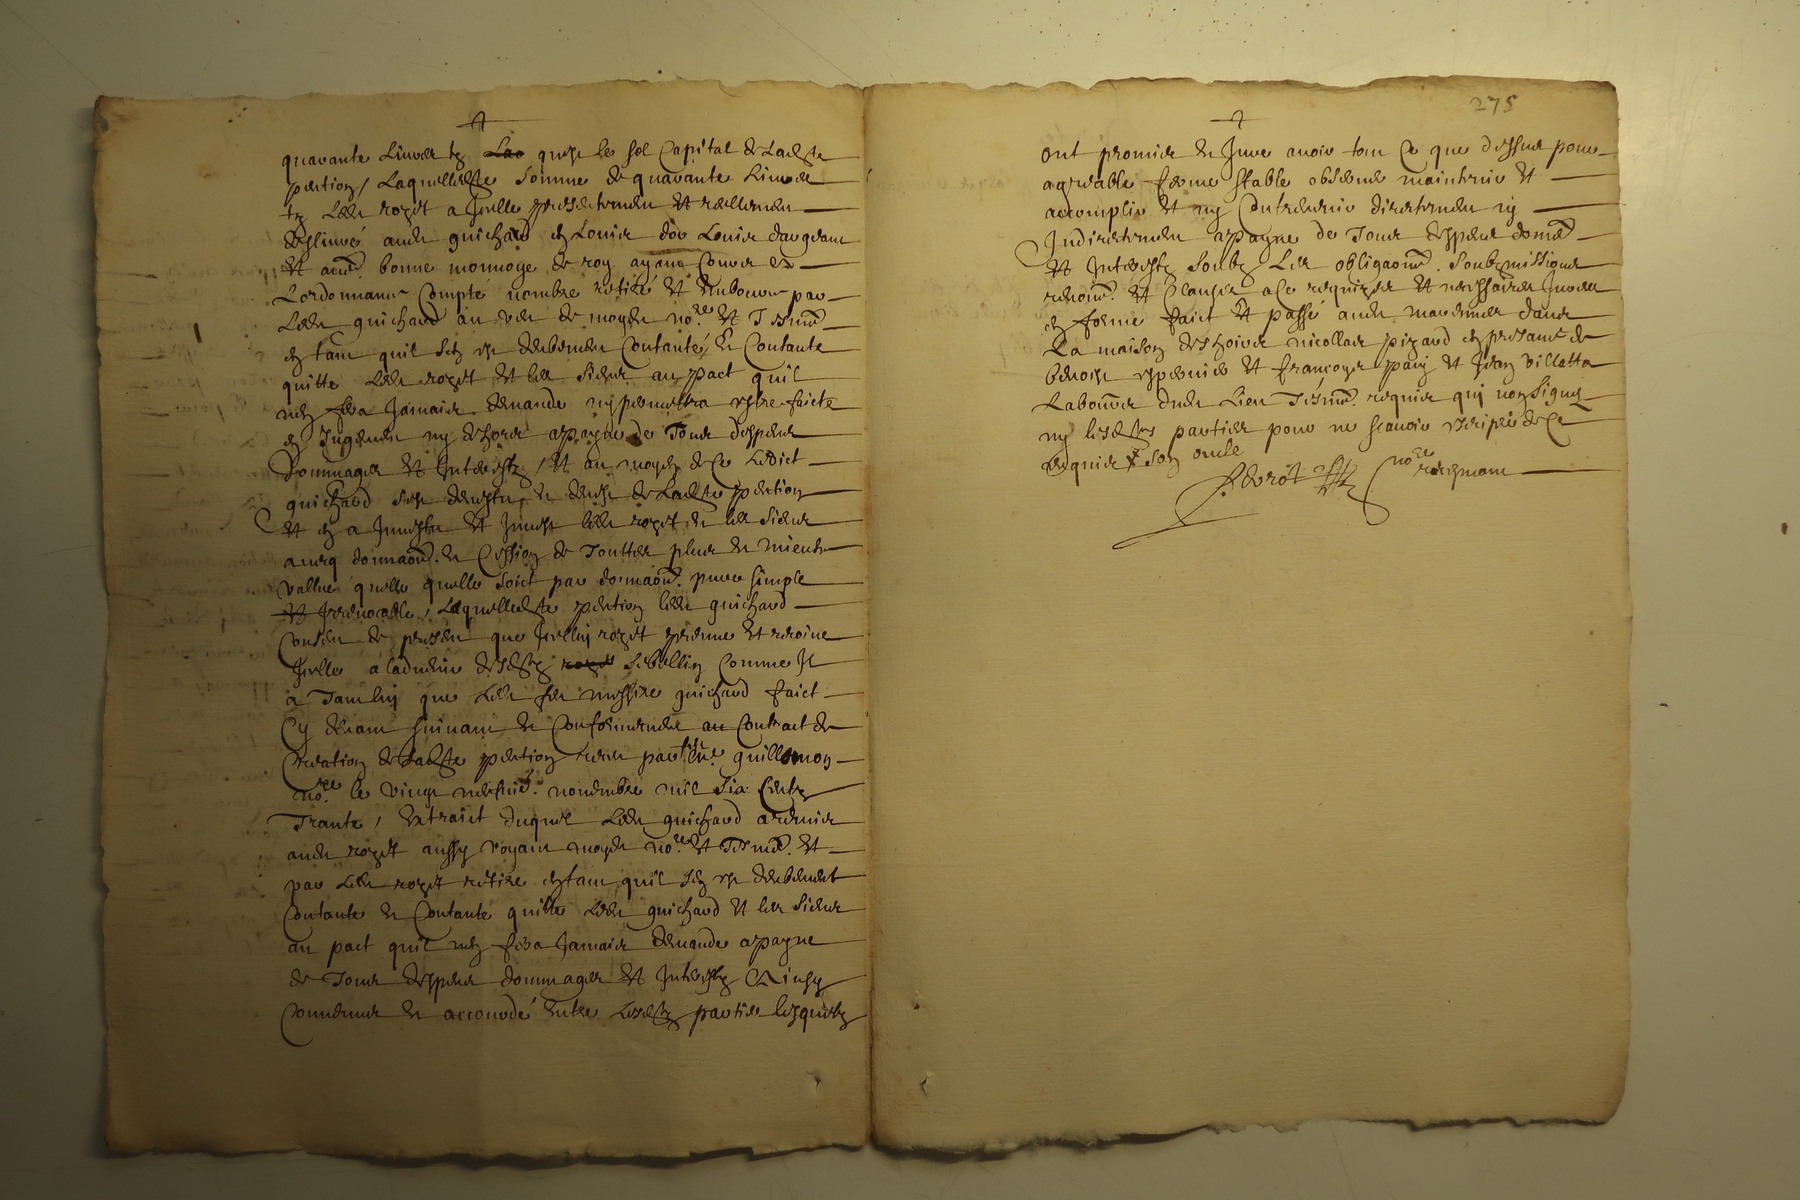 quarante livres tz qu'est le sol capital de lad.te
pention, laquelled.te somme de quarante livres
tz led. rozet a icelle presentement et reellement
deslivré aud. guichard en louis d'or louis d'argent
et autre bonne monnoye de roy ayant cours ex
l'ordonnance compté nombre retiré et emboursé par
led. guichard au veu de moyd. no.re et tesmo.
en tant qu'il s'en est deubement contanté, et contante
quitte led. rozet et les siens au pact qu'il
n'en fera jamais demande ny permettra estre faicte
en jugement ny dehors a payne de tous despens
dommages et interestz, et au moyen de ce ledict
guichard s'est devestu et devest de lad.te pention
et en a investu et invest led. rozet et les siens
avecq donnaon. et cession de touttes plus et mieux
vallue quelle quelle soict par donnaon. pure simple
et irrevocable, laquelled.te pention led. guichard
consent de presen que icelluy rozet prenne et recoive
icelle a l'advenir desd.tz sebellin comme il
a
que led. feu messire guichard faict
cy devant suivant et conformement au contract de
creation de lad.te pention receu par guillomon
no.re le vingt novembre mil six centz
trante, extraict duquel led. guichard a remis
aud. rozet aussy voyant moyd. no.re et tesmo. et
par led. rozet retire en tant qu'il s'en est deubement
contante et contanté quitte led. guichard et les siens
au pact qu'il n'en fera jamais demande a payne
de tous despens dommages et interestz ainsy
convenus et accourdé entre lesd.tz parties lesquelz
275
ont promis et juré avoir tout ce que dessus pour
agreable ferme stable observer maintenir et
accomplir et ny contrevenir directement ny
indirectement a payne de tous despens dome.
et interestz soubz les obligaons. soubzmissions
renons. et clauses a ce requises et necessaires jurées
en forme faict et passé aud. dans
la maison des hoirs nicollas pizard en presance de
benoist et francoys pary et jean villatta
labour. dud. lieu tesmo. requis qui n'on signé
ny lesd.tes parties pour ne scavoir
requis
no.re